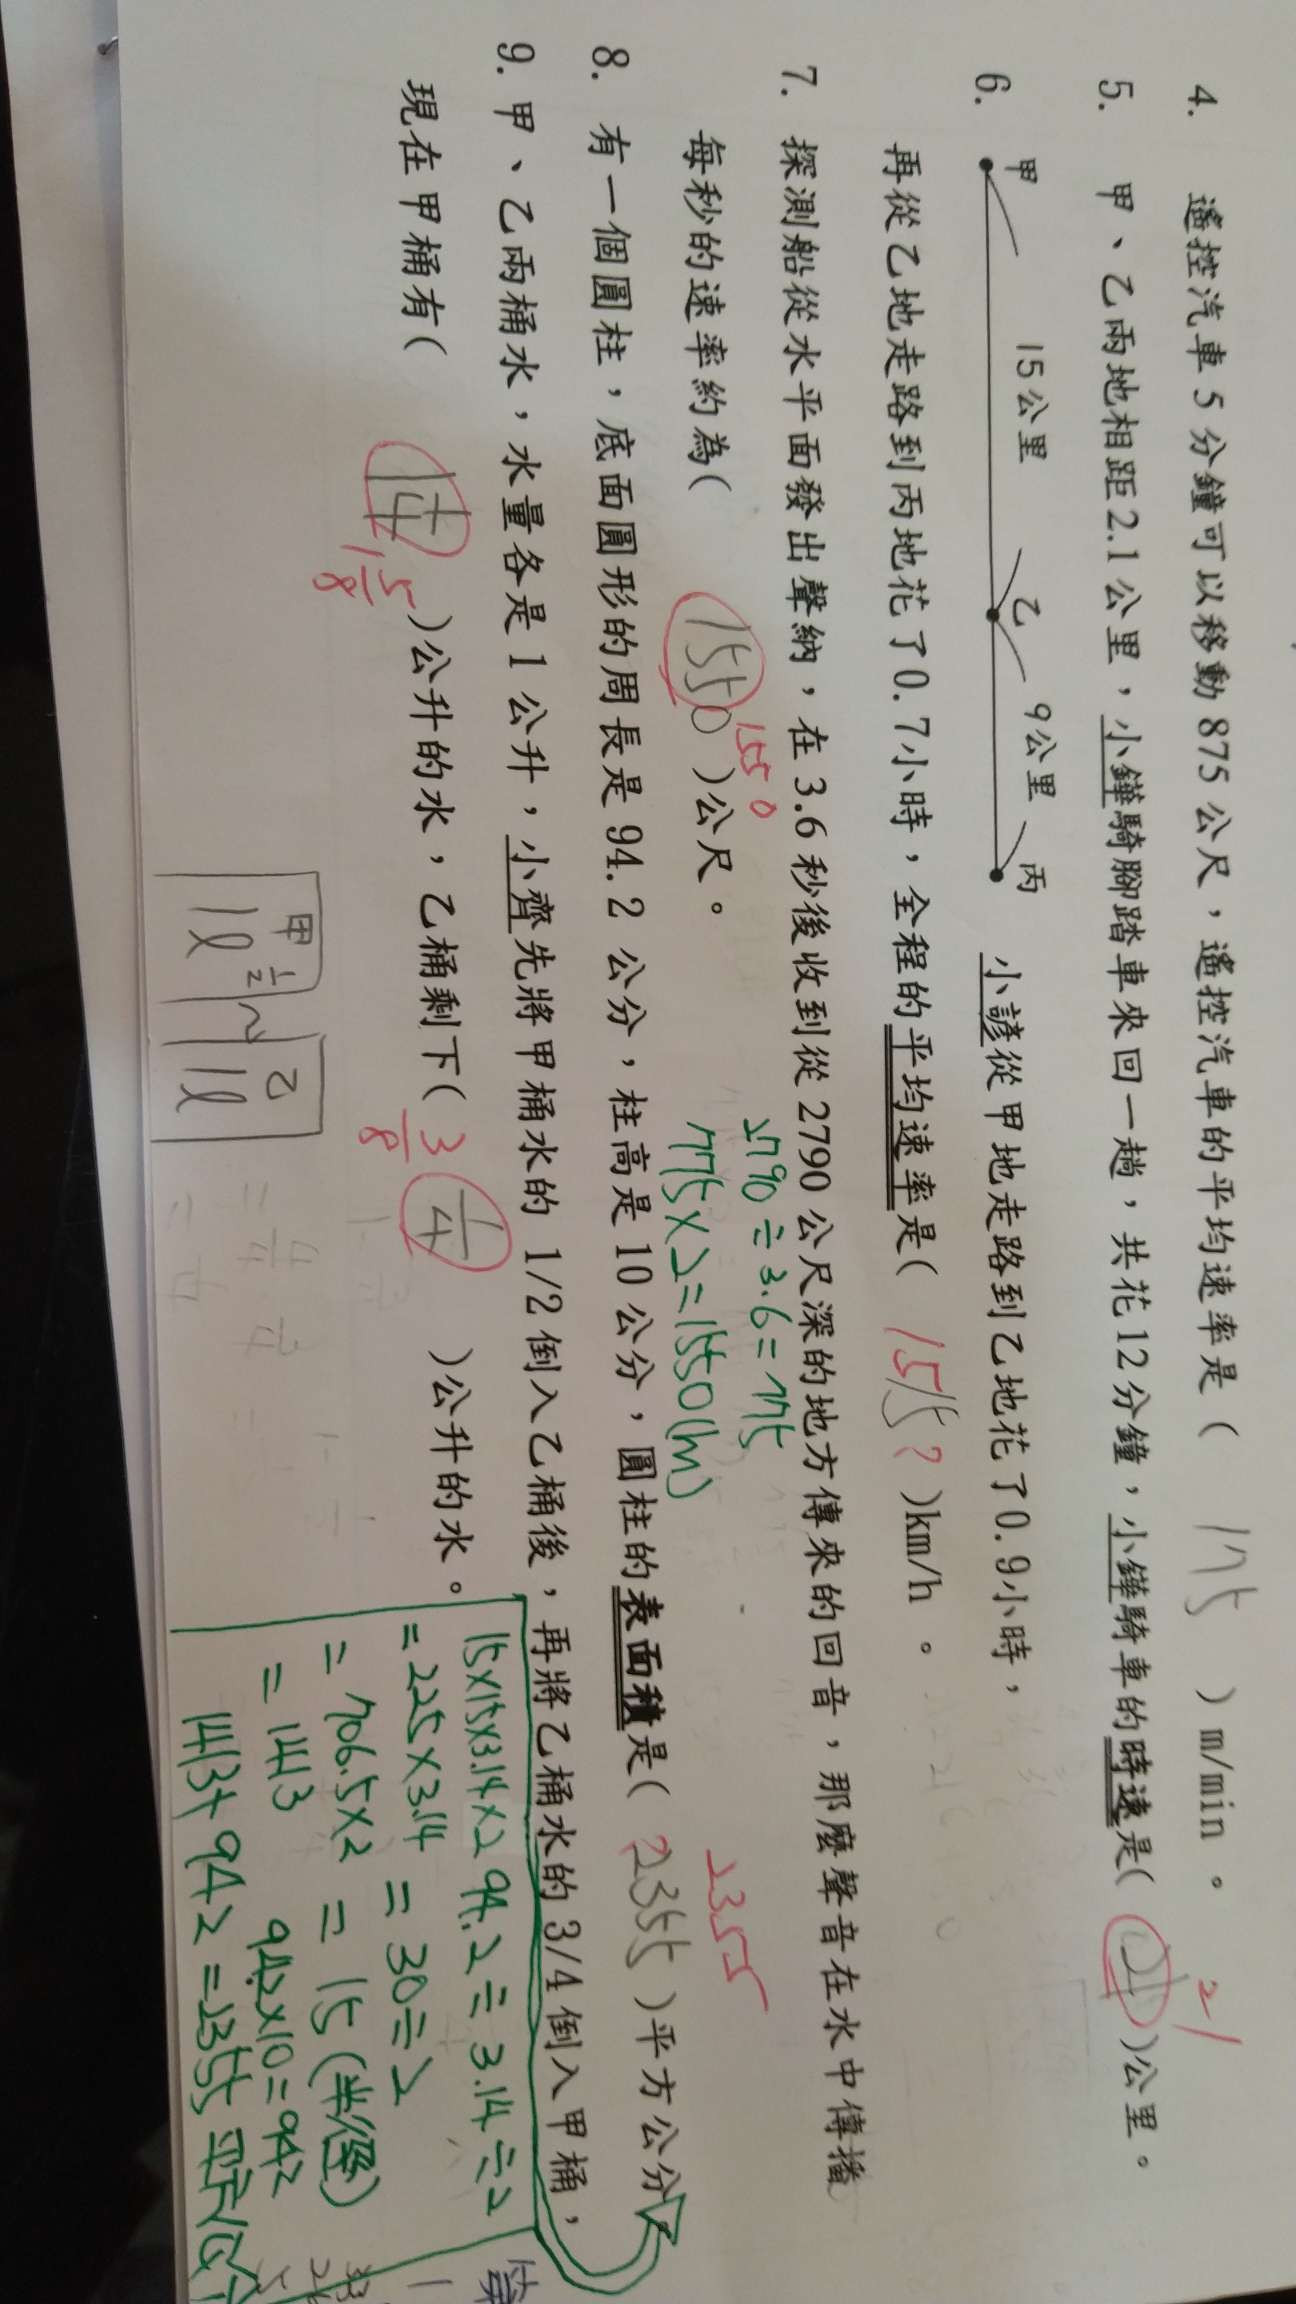 4. 遙控汽車5分鐘可以移動875公尺，遙控汽車的平均速率是( 175 )m/min。
21
5. 甲、乙兩地相距2.1公里，小鏵騎腳踏車來回一趟，共花12分鐘，小鏵騎車的時速是( 21 )公里。
6. 甲 15公里 乙 9公里 丙 小諺從甲地走路到乙地花了0.9小時，
再從乙地走路到丙地花了0.7小時，全程的平均速率是( 15 ? )km/h。
7. 探測船從水平面發出聲納，在3.6秒後收到從2790公尺深的地方傳來的回音，那麼聲音在水中傳播
1550
2790÷3.6=775
每秒的速率約為( 1550 )公尺。
775×2=1550(m)
2355
8. 有一個圓柱，底面圓形的周長是94.2公分，柱高是10公分，圓柱的表面積是( 2355 )平方公分
9. 甲、乙兩桶水，水量各是1公升，小齊先將甲桶水的1/2倒入乙桶後，再將乙桶水的3/4倒入甲桶，
現在甲桶有( 1 1/4 )公升的水，乙桶剩下( 1/4 )公升的水。
1 5/8
3/8
甲 1/2 乙
1ℓ 1ℓ
15×15×3.14×2 94.2÷3.14÷2
=225×3.14 =30÷2
=706.5×2 =15(半徑)
=1413 94.2×10=942
1413+942=2355